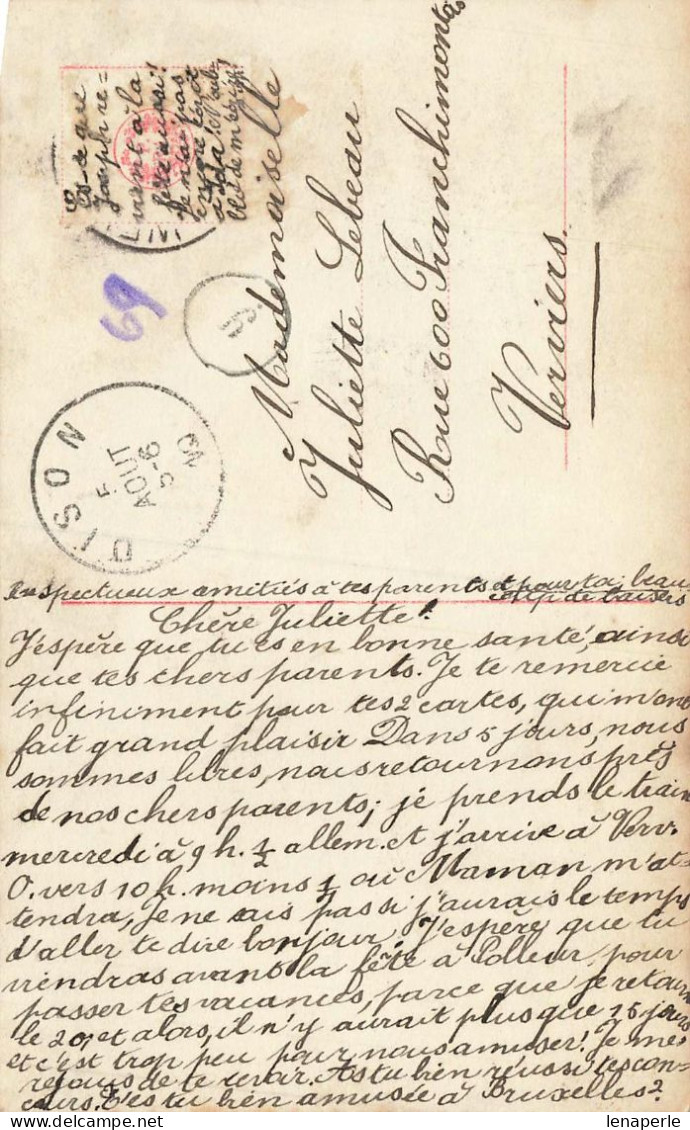 Est-ce que
Joseph re=
vient à la
fête aussi!
Je n'ai pas
encore écrit
à Ida! N'oub-
lie de m'écrire!
69
9
DISON
5
AOUT
5-6
Mademoiselle
Juliette Lebeau
Rue 600 Franchimontois
Verviers.
Respectueux amitiés à tes parents et pour toi, beau
coup de baisers
Chère Juliette!
J'espère que tu es en bonne santé, ainsi
que tes chers parents. Je te remercie
infiniment pour tes 2 cartes, qui m'ont
fait grand plaisir Dans 5 jours, nous
sommes libres, nous retournons près
de nos chers parents; je prends le train
mercredi à 9 h. 1/2 allem. et j'arrive à Verv.
O. vers 10 h. moins 1/4 où Maman m'at-
tendra, Je ne sais pas si j'aurais le temps
d'aller te dire bonjour, J'espère que tu
viendras avant la fête à Polleur, pour
passer tes vacances, parce que je retourne
le 20, et alors, il n'y aurait plus que 15 jours
et c'est trop peu pour nous amuser! Je me
rejouis de te revoir. As tu bien réussi tes con-
cours. T'es tu bien amusée à Bruxelles?
lenaperle